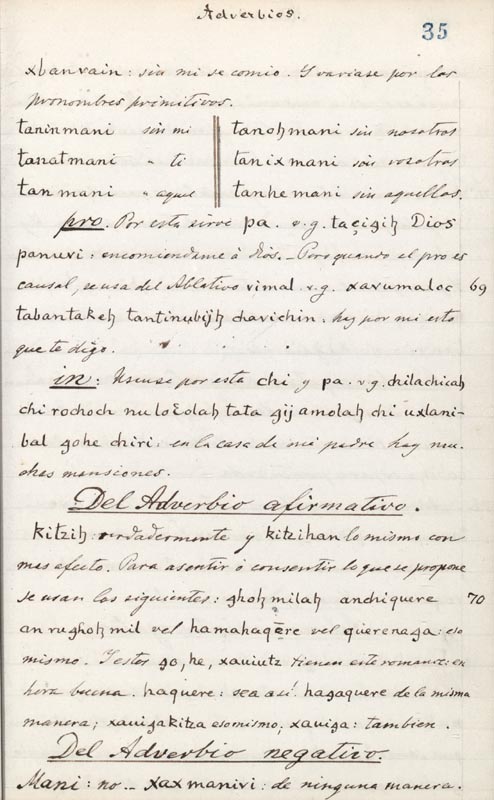 Adverbios.
35
xbanvain: sin mi se comio. Y variase por los
pronombres primitivos.
taninmani sin mi tanohmani sin nosotros
tanatmani " ti tanixmani sin vosotros
tan mani " aquel tanhemani sin aquellos.
pro. Por esta sirve pa. v.g. taçigih Dios
panuvi: encomiendame à Dios. - Pero quando el pro es
causal, se usa del Ablativo vimal. v.g. xavumaloc 69
tabantakeh tantinubijh chavichin: hoy por mi esto
que te digo.
in: Usense por esta chi y pa. v.g. chilachicah
chi rochoch nuloɛolah tata gij amolah chi uxlani-
bal gohe chiri: en la casa de mi padre hay mu-
chas mansiones.
Del Adverbio afirmativo.
kitzih: verdadermente y kitzihan lo mismo con
mas efecto. Para asentir ó consentir lo que se propone
se usan los siguientes: ghoh milah anchiquere 70
an rughoh mil vel hamahaqere vel querenaga: eso
mismo. Y estos go, he, xaviutz tienen este romance: en
hora buena. haquere: sea así. hagaquere de la misma
manera; xavigakitza eso mismo; xaviga: tambien.
Del Adverbio negativo.
Mani: no. - xax manivi: de ninguna manera.